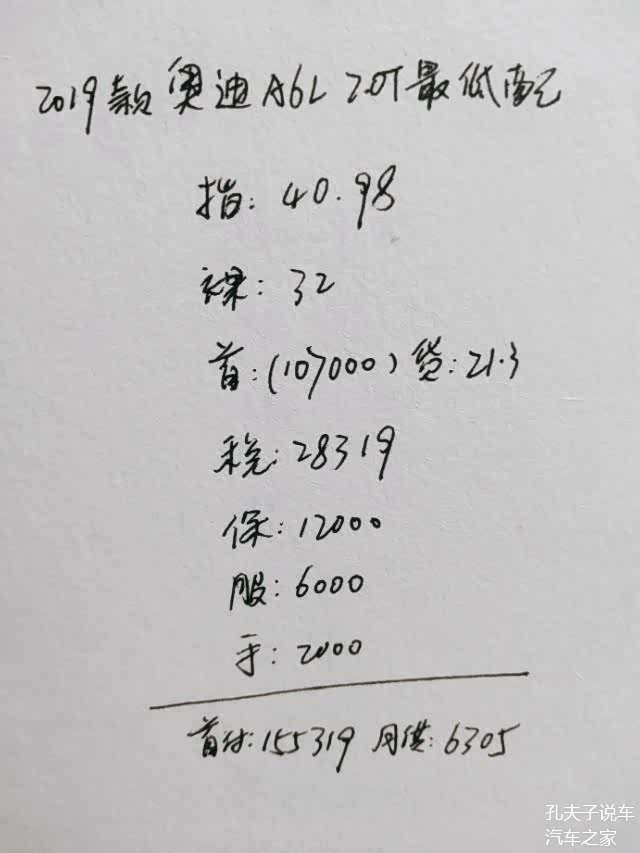 2019款奥迪A6L 2.0T最低配
指: 40.98
裸: 32
首:(107000) 贷:21.3
税:28319
保:12000
服:6000
手:2000
首付:155319 月供:6305
孔夫子说车
汽车之家